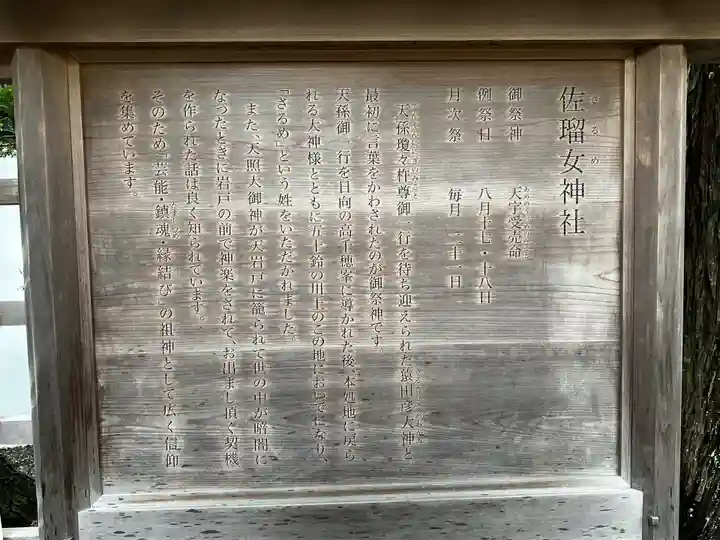 佐瑠女神社
御祭神　天宇受売命
例祭日　八月十七・十八日
月次祭　毎月　二十一日
天孫瓊々杵尊御一行を待ち迎えられた猿田彦大神と
最初に言葉をかわされたのが御祭神です。
天孫御一行を日向の高千穂峯に導かれた後、本処地に戻ら
れる大神様とともに五十鈴の川上のこの地においでになり、
「さるめ」という姓をいただかれました。
また、天照大御神が天岩戸に籠られて世の中が暗闇に
なったときに岩戸の前で神楽をされて、お出まし頂ぐ契機
を作られた話は良く知られています。
そのため「芸能・鎮魂・縁結び」の祖神として広く信仰
を集めています。